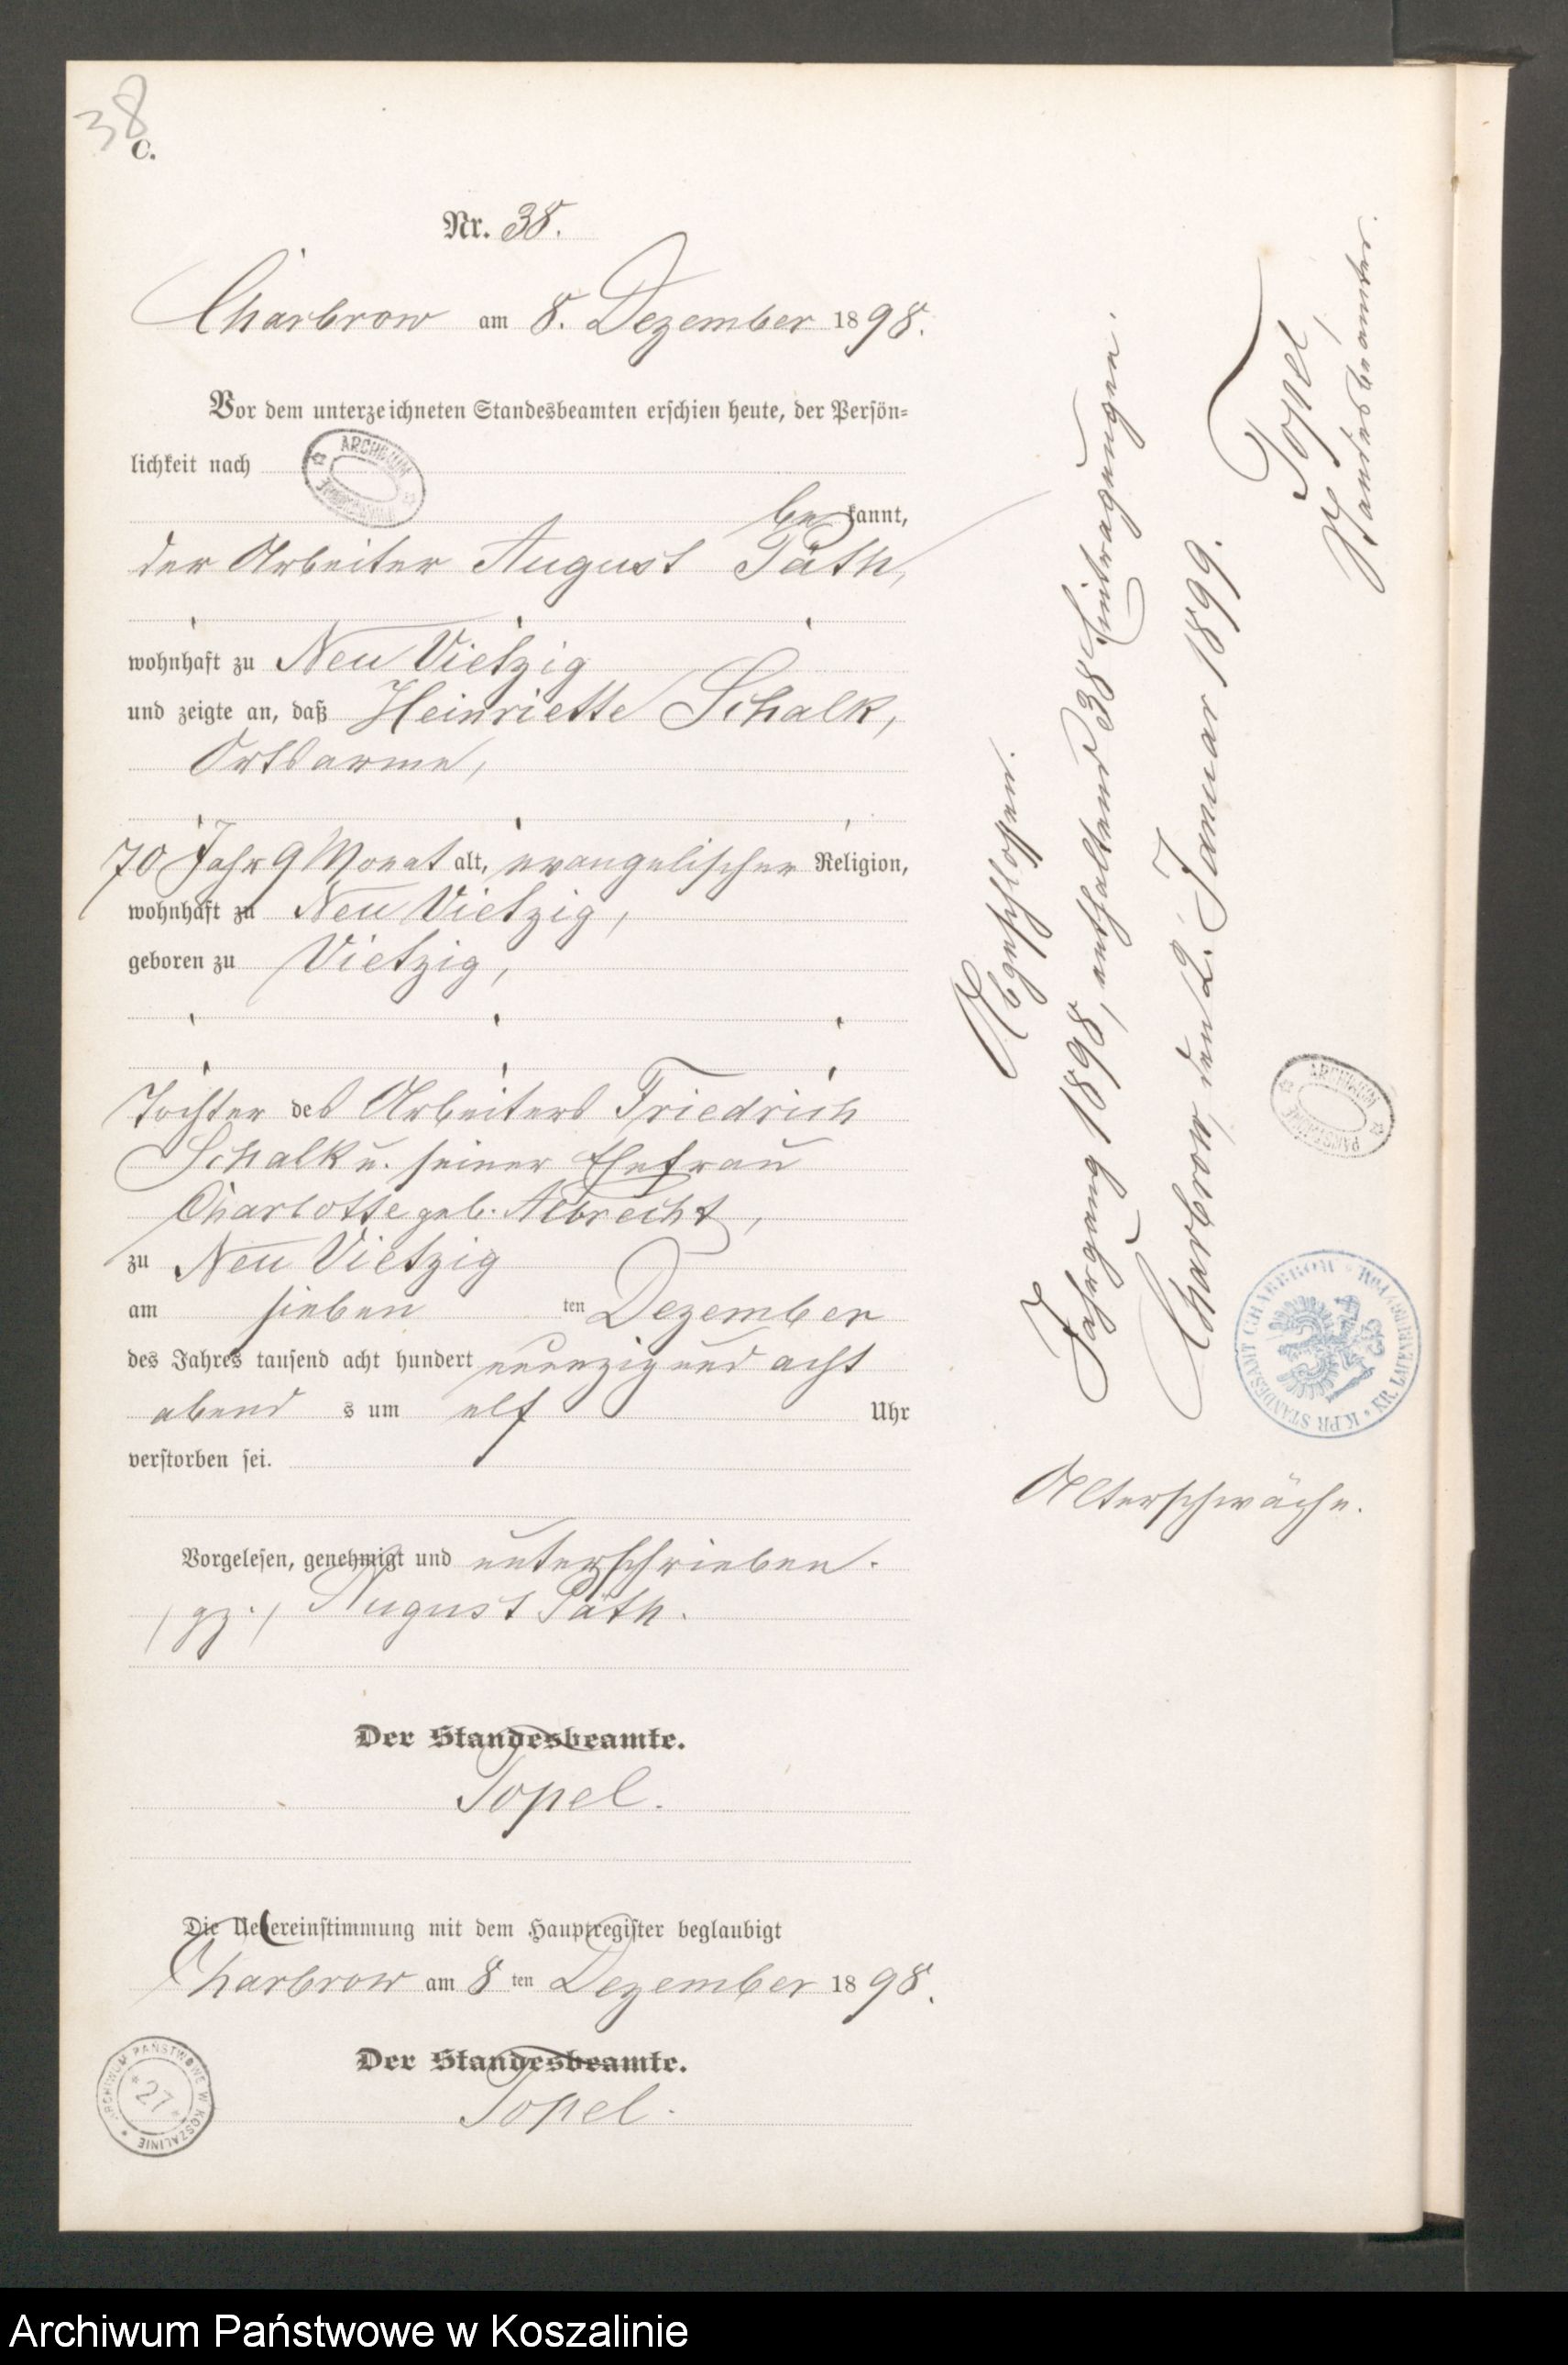 38
C.
Nr. 38.
Charbrow am 8. Dezember 1898.
Vor dem unterzeichneten Standesbeamten erschien heute, der Persön=
lichkeit nach
be kannt,
der Arbeiter August Päth,
wohnhaft zu Neu Vietzig
und zeigte an, daß Heinriette Schalk,
Ortsarme,
70 Jahr 9 Monat alt, evangelischer Religion,
wohnhaft zu Neu Vietzig,
geboren zu Vietzig,
Tochter des Arbeiters Friedrich
Schalk u. seiner Ehefrau
Charlotte geb. Albrecht,
zu Neu Vietzig
am sieben ten Dezember
des Jahres tausend acht hundert neunzig und acht
abend s um elf Uhr
verstorben sei.
Vorgelesen, genehmigt und unterschrieben.
(gz.) August Päth.
Der Standesbeamte.
Topel.
Die Uebereinstimmung mit dem Hauptregister beglaubigt
Charbrow am 8 ten Dezember 1898.
Der Standesbeamte.
Topel.
Abgeschlossen.
Jahrgang 1898, enthaltend 38 Eintragungen.
Charbrow, den 2. Januar 1899.
Topel,
Standesbeamter.
Alterschwäche.
ARCHIWUM
PAŃSTWOWE
ARCHIWUM
PAŃSTWOWE
K.PR STANDESAMT CHARBROW * KR. LAUENBURG / POM
ARCHIWUM PAŃSTWOWE W KOSZALINIE
*27*
Archiwum Państwowe w Koszalinie